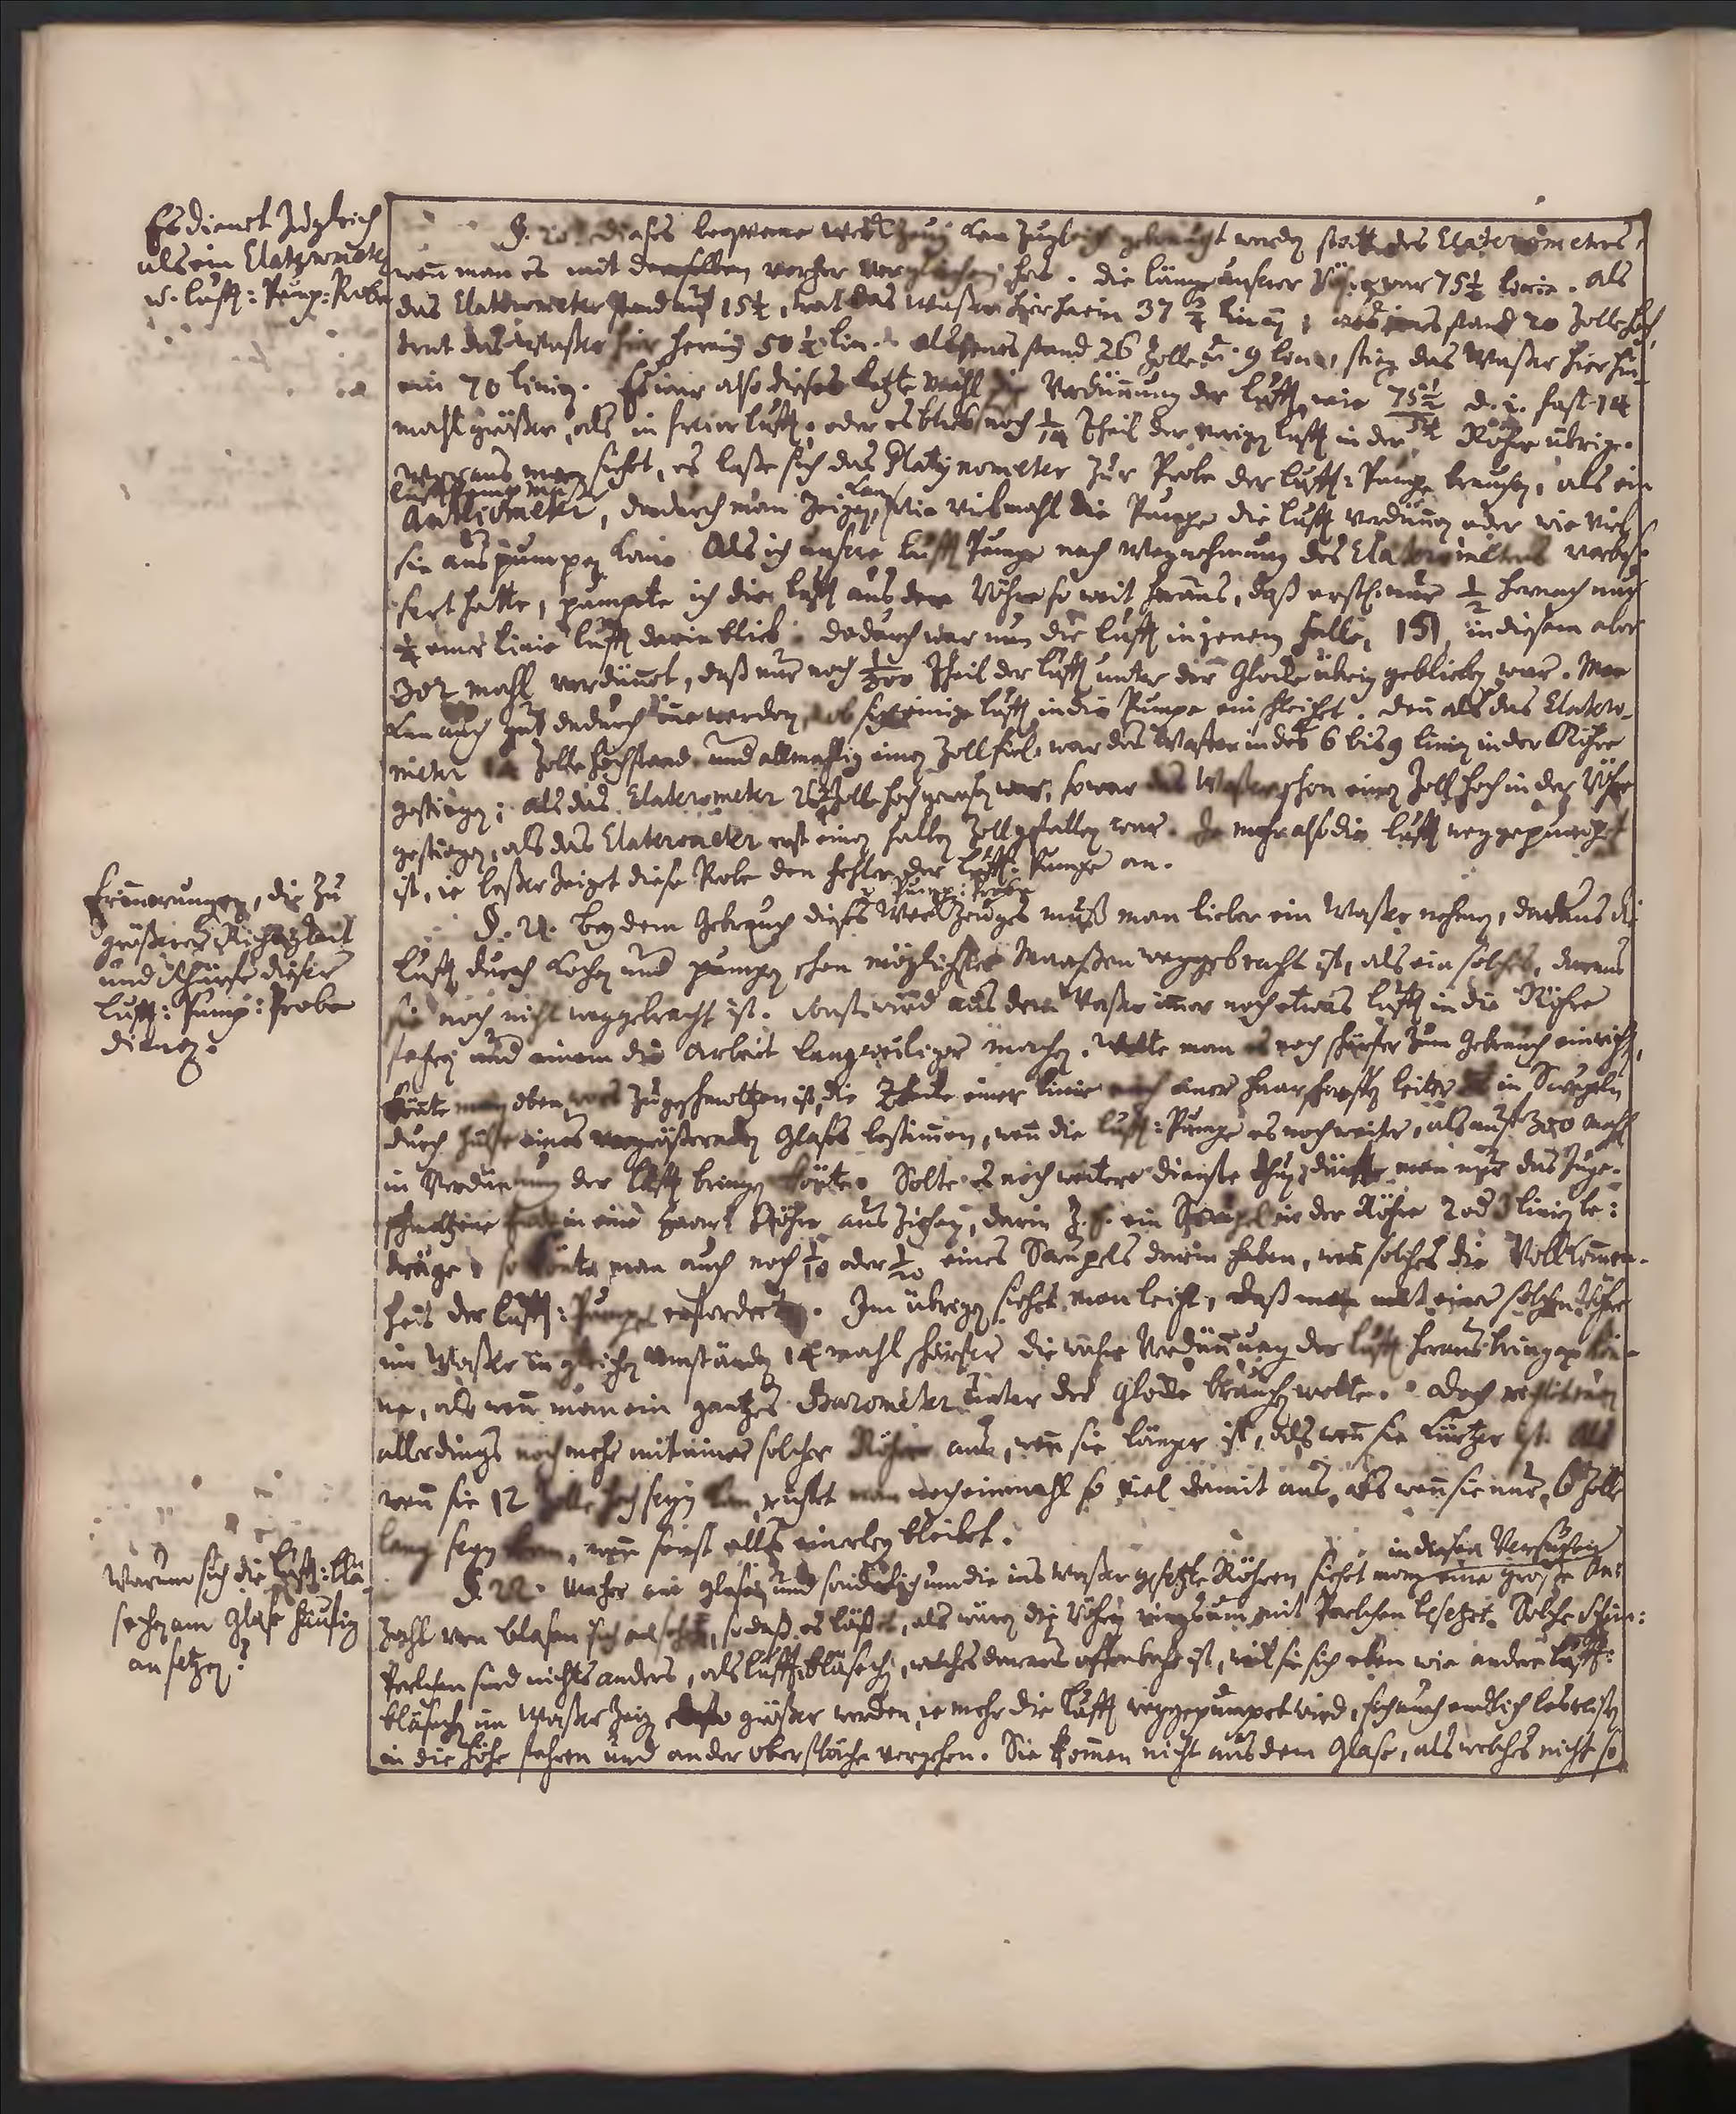 Es dienet zugleich
als ein Elaterometer
u. Lufft-Pump-Probe
§. 20. Dieses bequeme Werckzeug kan zugleich gebraucht werden statt des Elaterometers,
wen man es mit demselben vorher verglichen hat. Die länge unserer Röhre war 75 1/2 linie. Als
das Elaterometer stand auf 15 1/4, trat das Waßer hierherein 37 3/4 linien, als jenes stand 20 Zolle hoch,
trat das Waßer hier herein 50 1/4 lin. als jenes stand 26 Zolle u. 9 linien, stieg das Waßer hier hin-
ein 70 linien. Es war also dieses letzte mahl die Verdünnung der Lufft, wie 75 1/2 d. i. fast 14
mahl größer, als in freier Lufft, oder es blieb noch 1/14 Theil der vorigen Lufft in der Röhre übrig.
Woraus man siehet, es laße sich das zur Probe der Lufft-Pumpe brauchen, als ein
Antliometer, dadurch man zeigen kan, wie vielmahl die Pumpe die Lufft verdünnen oder wie viel
sie auspumpen könne. Als ich unsere Lufft Pumpe nach Wegnehmung des Elaterometers verbeß-
sert hatte, pumpete ich die Lufft aus der Röhre so weit heraus, daß erstl. nur 1/2 hernach nur
1/4 einer linie Lufft darin blieb. Dadurch war nun die Lufft in jenem Falle, 151, in diesem aber
302 mahl verdünnet, daß nur noch 1/300 Theil der Lufft unter der Glocke übrig geblieben war. Man
kan auch gut dadurch inne werden, ob sich einige Lufft in die Pumpe einschleichet. Den als das Elatero-
meter Zolle hoch stand und allmählig einen Zoll fiel, war das Waßer indeß 6 bis 9 linien in der Röhre
gestiegen; als das Elaterometer Zolle hoch gewesen war, so war das Waßer schon einen Zoll hoch in der Röhre
gestiegen, als das Elaterometer erst einen halben Zoll gefallen war. Je mehr also die Lufft weggepumpet
ist, ie beßer zeiget diese Probe den Fehler der Lufft-Pumpe an.
Erinnerungen, die zu
größerer Richtigkeit
und Schärfe dieser
Lufft-Pump-Probe
dienen.
Pump-Probe
§. 21. Bey dem Gebrauch dieses Werckzeuges muß man lieber ein Waßer nehmen, daraus die
Lufft durch Kochen und pumpen schon möglichster Maaßen weggebracht ist, als ein solches, daraus
sie noch nicht weggebracht ist. Sonst wird aus dem Waßer immer noch etwas Lufft in die Röhre
fahren und einem die Arbeit langweiliger machen. Wolte man es noch schärfer zum Gebrauch einrichten,
könte man oben, wo es zugeschmoltzen ist, die Theile einer linie nach einer haarscharfen leiter in Scrupeln
durch Hülfe eines vergrößernden Glases bestimmen, wen die Lufft-Pumpe es noch weiter, als auf 300 mahl
in Verdünnung der Lufft bringen könte. Solte es noch weitere Dienste thun, dürffte man nur das zuge-
schmoltzene Ende in eine Haar-Röhre ausziehen, darin z. E. ein Scrupel in der Röhre 2 od 3 linien be-
träge, so könte man auch noch 1/10 oder 1/20 eines Scrupels darin haben, wen solches die Vollkommen-
heit der Lufft-Pumpe erfordert. Im übrigen siehet man leicht, daß man mit einer solchen Röhre
im Waßer in gleichen Umständen 14 mahl schärfer die wahre Verdünnung der Lufft herausbringen kön-
ne, als wen man ein gantzes Barometer unter der Glocke brauchen wolte. Doch
allerdings noch mehr mit einer solchen Röhre aus, wen sie länger ist, als wen sie kürtzer ist. Als
wen sie 12 Zolle hoch seyn kan, richtet man noch einmahl so viel damit aus, als wen sie nur 6 Zolle
lang seyn kan, wen sonst alles einerley bleibet.
Warum sich die Lufft-blä-
sechen am Glase häufig
ansetzen?
in diesen Versuchen
§. 22. und sonderlich um die ins Waßer gesetzte Röhren siehet man eine große An-
zahl von blasen sich ansetzen, so daß es läßet, als wären die Röhren ringsum mit Perlchen besetzet. Solche Schein-
Perlchen sind nichts anders, als Lufftbläsechen, welches daraus offenbahr ist, weil sie sich eben wie andere Lufft-
bläsechen im Waßer zeigen, desto größer werden, ie mehr die Lufft weggepumpet wird, sich auch endlich losreißen,
in die Höhe fahren und an der Oberfläche vergehen. Sie kommen nicht aus dem Glase, als welches nicht so